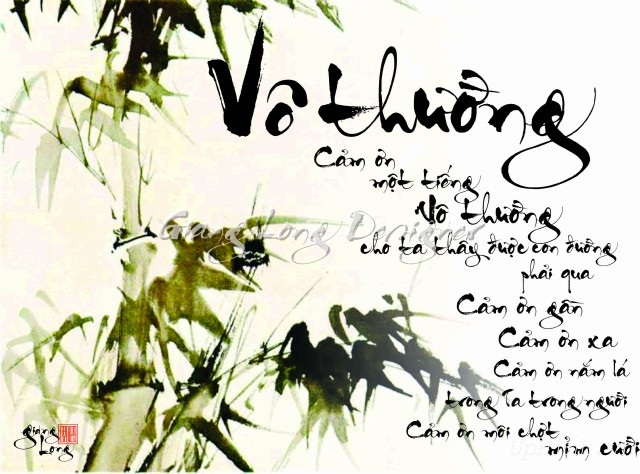 Vô thường
Cảm ơn
một tiếng
Vô thường
cho ta thấy được con đường
phải qua
Cảm ơn gần
Cảm ơn xa
Cảm ơn nắm lá
trong ta trong người
Cảm ơn môi chợt
mỉm cười
Giang Long Designer
giang
Long